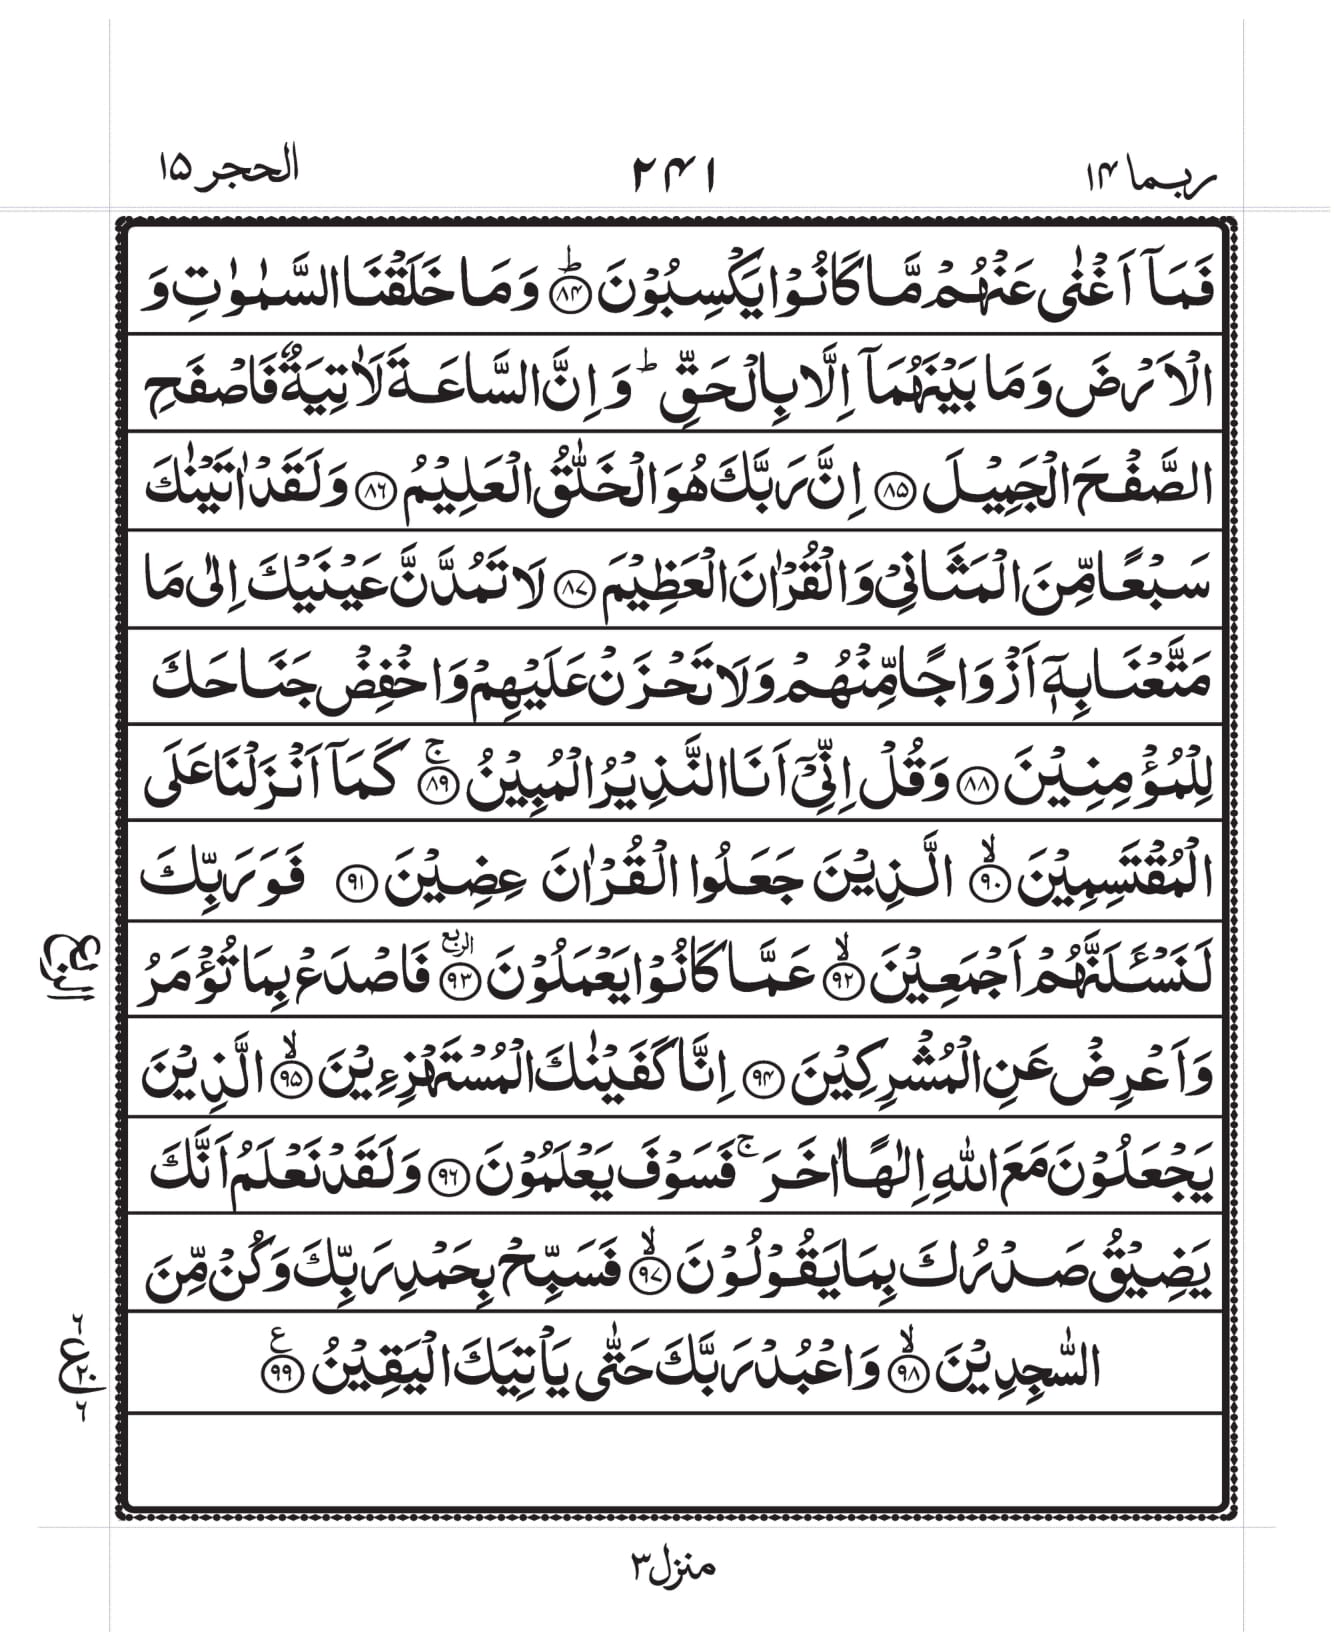 ربما ۱۴
۲۴۱
الحجر ۱۵
فَمَاۤ اَغْنٰى عَنْهُمْ مَّا كَانُوْا يَكْسِبُوْنَ ؕ﴿۸۴﴾ وَمَا خَلَقْنَا السَّمٰوٰتِ وَ
الْاَرْضَ وَمَا بَيْنَهُمَاۤ اِلَّا بِالْحَقِّ ؕ وَاِنَّ السَّاعَةَ لَاٰتِيَةٌ فَاصْفَحِ
الصَّفْحَ الْجَمِيْلَ ﴿۸۵﴾ اِنَّ رَبَّكَ هُوَ الْخَلّٰقُ الْعَلِيْمُ ﴿۸۶﴾ وَلَقَدْ اٰتَيْنٰكَ
سَبْعًا مِّنَ الْمَثَانِيْ وَالْقُرْاٰنَ الْعَظِيْمَ ﴿۸۷﴾ لَا تَمُدَّنَّ عَيْنَيْكَ اِلٰى مَا
مَتَّعْنَا بِهٖۤ اَزْوَاجًا مِّنْهُمْ وَلَا تَحْزَنْ عَلَيْهِمْ وَاخْفِضْ جَنَاحَكَ
لِلْمُؤْمِنِيْنَ ﴿۸۸﴾ وَقُلْ اِنِّيْۤ اَنَا النَّذِيْرُ الْمُبِيْنُ ۚ﴿۸۹﴾ كَمَاۤ اَنْزَلْنَا عَلَى
الْمُقْتَسِمِيْنَ ۙ﴿۹۰﴾ الَّذِيْنَ جَعَلُوا الْقُرْاٰنَ عِضِيْنَ ﴿۹۱﴾ فَوَرَبِّكَ
لَنَسْـَٔلَنَّهُمْ اَجْمَعِيْنَ ۙ﴿۹۲﴾ عَمَّا كَانُوْا يَعْمَلُوْنَ الربع ﴿۹۳﴾ فَاصْدَعْ بِمَا تُؤْمَرُ
الربع
وَاَعْرِضْ عَنِ الْمُشْرِكِيْنَ ﴿۹۴﴾ اِنَّا كَفَيْنٰكَ الْمُسْتَهْزِءِيْنَ ۙ﴿۹۵﴾ الَّذِيْنَ
يَجْعَلُوْنَ مَعَ اللّٰهِ اِلٰهًا اٰخَرَ ۚ فَسَوْفَ يَعْلَمُوْنَ ﴿۹۶﴾ وَلَقَدْ نَعْلَمُ اَنَّكَ
يَضِيْقُ صَدْرُكَ بِمَا يَقُوْلُوْنَ ۙ﴿۹۷﴾ فَسَبِّحْ بِحَمْدِ رَبِّكَ وَكُنْ مِّنَ
السّٰجِدِيْنَ ۙ﴿۹۸﴾ وَاعْبُدْ رَبَّكَ حَتّٰى يَاْتِيَكَ الْيَقِيْنُ ع ﴿۹۹﴾
۶
ع ۲۰
۶
منزل ۳